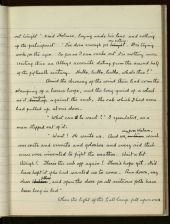 out tonight!" said Holmes, laying aside his lens and rolling
up the palimpsest. "I've done enough for
work for the eyes. So far as I can make out it is nothing more
exciting than an Abbey's accounts dating from the second half
of the fifteenth century. Halloa, halloa, halloa, what's this?"
Amid the droning of the wind there had come the
stamping of a horse's hoofs and the long grind of a wheel
as it against the curb. The cab which I had seen
had pulled up at our door.
"What can he want?" I ejaculated, as a
man stepped out of it.
"Want! He wants us. And we, my poor Watson,
want coats and cravats and goloshes and every aid that
man ever invented to fight the weather. Wait a bit
though! There's the cab off again! There's hope yet. He'd
have kept it if he had wanted us to come. Run down, my
dear and open the door for all virtuous folk have
been long in bed."
When the light of the hall lamp fell upon our